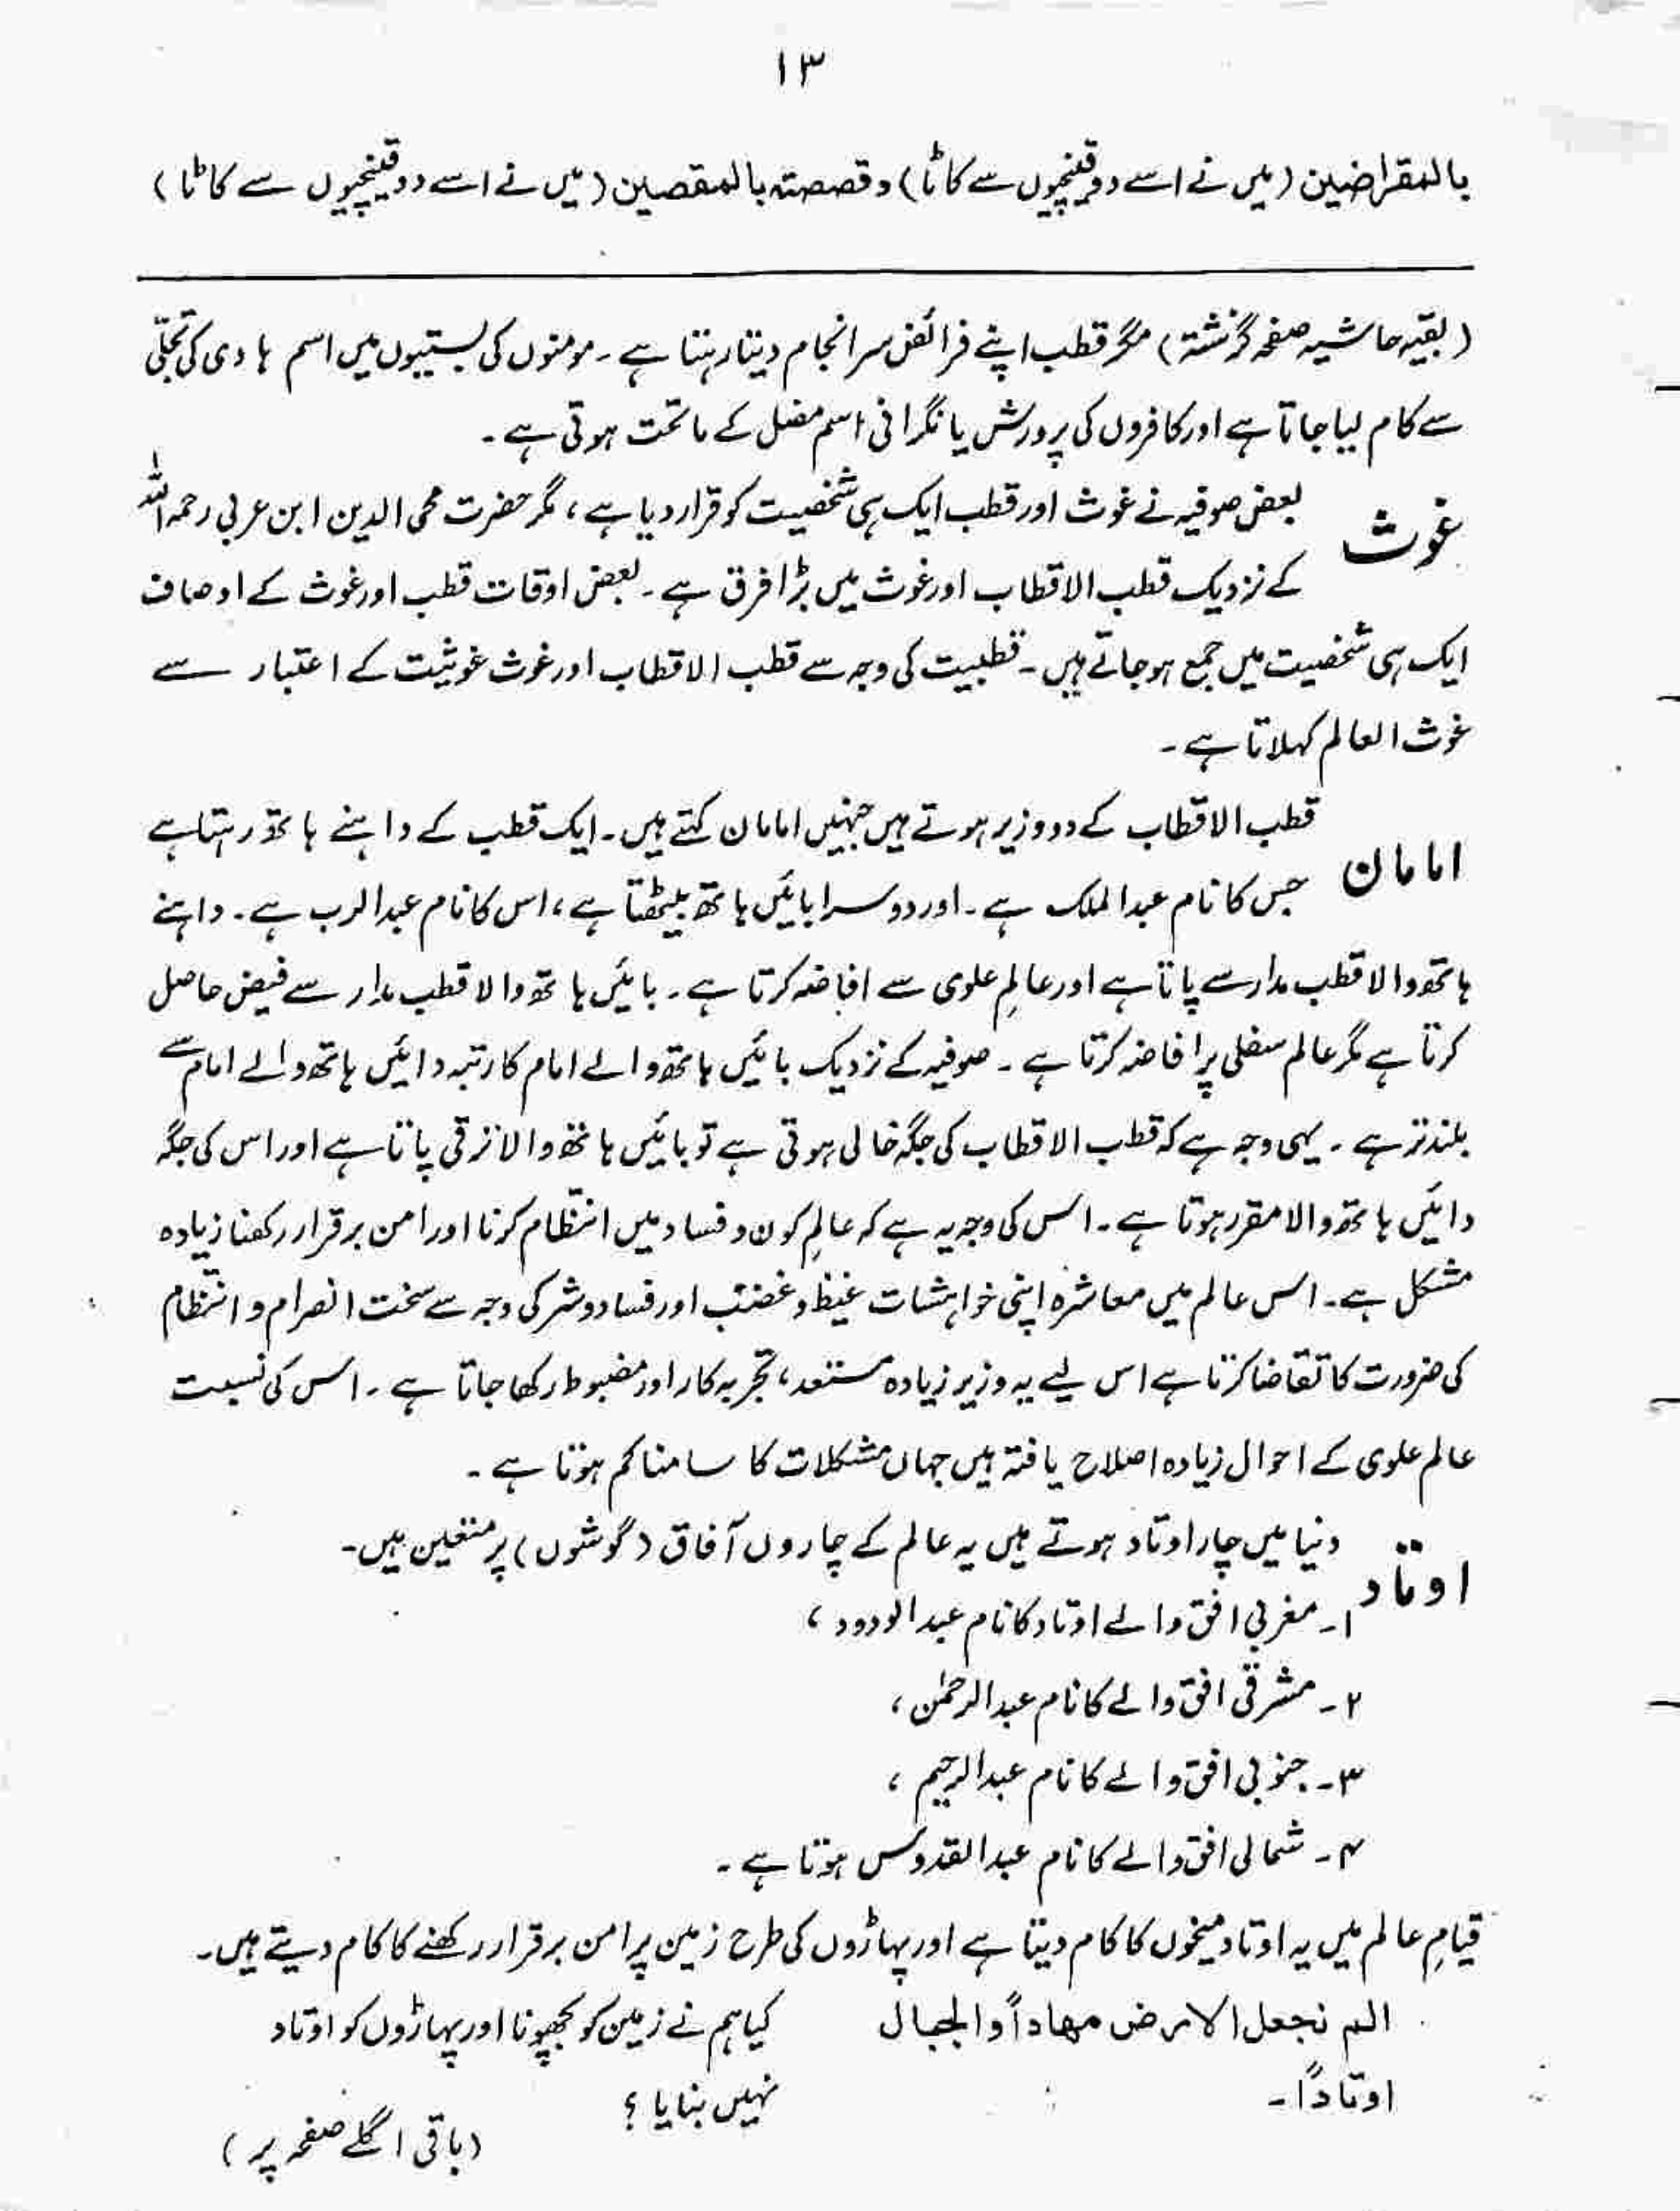 ۱۳
بالمقراضین (میں نے اسے دو قینچیوں سے کاٹا) و قصصتہ بالمقصین (میں نے اسے دو قینچیوں سے کاٹا)
(بقیہ حاشیہ صفحہ گزشتہ) مگر قطب اپنے فرائض سرانجام دیتا رہتا ہے۔ مومنوں کی بستیوں میں اسم ہادی کی تجلّی
سے کام لیا جاتا ہے اور کافروں کی پرورش یا نگرانی اسم مضل کے ماتحت ہوتی ہے۔
غوث
بعض صوفیہ نے غوث اور قطب ایک ہی شخصیت کو قرار دیا ہے، مگر حضرت محی الدین ابن عربی رحمہ اللہ
کے نزدیک قطب الاقطاب اور غوث میں بڑا فرق ہے۔ بعض اوقات قطب اور غوث کے اوصاف
ایک ہی شخصیت میں جمع ہو جاتے ہیں۔ قطبیت کی وجہ سے قطب الاقطاب اور غوث غوثیت کے اعتبار سے
غوث العالم کہلاتا ہے۔
امامان
قطب الاقطاب کے دو وزیر ہوتے ہیں جنہیں امامان کہتے ہیں۔ ایک قطب کے داہنے ہاتھ رہتا ہے
جس کا نام عبدالملک ہے۔ اور دوسرا بائیں ہاتھ بیٹھتا ہے، اس کا نام عبدالرب ہے۔ داہنے
ہاتھ والا قطب مدار سے پاتا ہے اور عالمِ علوی سے افاضہ کرتا ہے۔ بائیں ہاتھ والا قطب مدار سے فیض حاصل
کرتا ہے مگر عالم سفلی پر افاضہ کرتا ہے۔ صوفیہ کے نزدیک بائیں ہاتھ والے امام کا رتبہ دائیں ہاتھ والے امام سے
بلند تر ہے۔ یہی وجہ ہے کہ قطب الاقطاب کی جگہ خالی ہوتی ہے تو بائیں ہاتھ والا ترقی پاتا ہے اور اس کی جگہ
دائیں ہاتھ والا مقرر ہوتا ہے۔ اس کی وجہ یہ ہے کہ عالمِ کون و فساد میں انتظام کرنا اور امن برقرار رکھنا زیادہ
مشکل ہے۔ اس عالم میں معاشرہ اپنی خواہشات غیظ و غضب اور فساد و شر کی وجہ سے سخت انصرام و انتظام
کی ضرورت کا تقاضا کرتا ہے اس لیے یہ وزیر زیادہ مستعد، تجربہ کار اور مضبوط رکھا جاتا ہے۔ اس کی نسبت
عالم علوی کے احوال زیادہ اصلاح یافتہ ہیں جہاں مشکلات کا سامنا کم ہوتا ہے۔
اوتاد
دنیا میں چار اوتاد ہوتے ہیں یہ عالم کے چاروں آفاق (گوشوں) پر متعین ہیں۔
۱۔ مغربی افق والے اوتاد کا نام عبدالودود،
۲۔ مشرقی افق والے کا نام عبدالرحمٰن،
۳۔ جنوبی افق والے کا نام عبدالرحیم،
۴۔ شمالی افق والے کا نام عبدالقدوس ہوتا ہے۔
قیامِ عالم میں یہ اوتاد میخوں کا کام دیتا ہے اور پہاڑوں کی طرح زمین پر امن برقرار رکھنے کا کام دیتے ہیں۔
الم نجعل الارض مھاداً والجبال
اوتادًا۔
کیا ہم نے زمین کو بچھونا اور پہاڑوں کو اوتاد
نہیں بنایا؟
(باقی اگلے صفحہ پر)